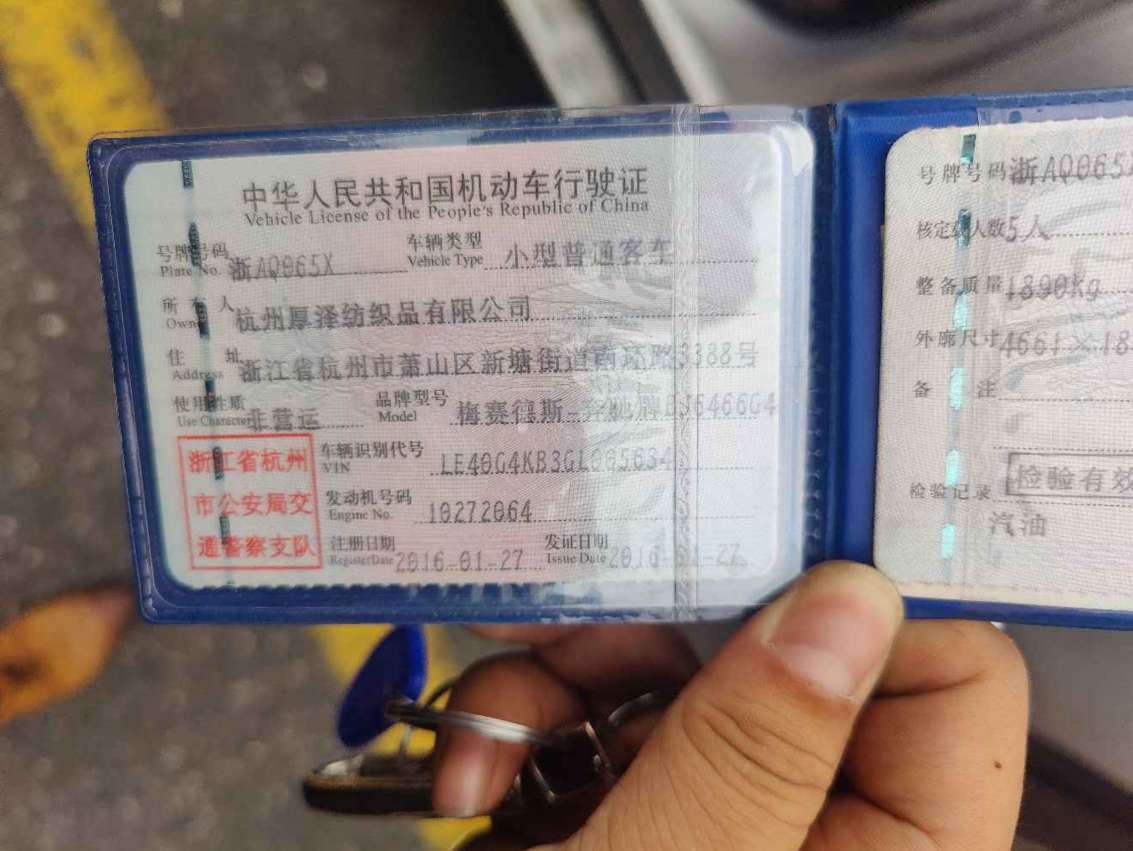 中华人民共和国机动车行驶证
Vehicle License of the People's Republic of China
号牌号码 浙AQ065X 车辆类型 小型普通客车
Plate No. Vehicle Type
所有人 杭州厚泽纺织品有限公司
Owner
住址 浙江省杭州市萧山区新塘街道南环路3388号
Address
使用性质 非营运 品牌型号 梅赛德斯-奔驰牌BJ6466G4
Use Character Model
浙江省杭州
市公安局交
通警察支队
车辆识别代号 LE40G4KB3GL005634
VIN
发动机号码 10272064
Engine No.
注册日期 2016-01-27 发证日期 2016-01-27
Register Date Issue Date
号牌号码 浙AQ065X
核定载人数 5人
整备质量 1890kg
外廓尺寸 4661×18
备注
检验记录 检验有效
汽油